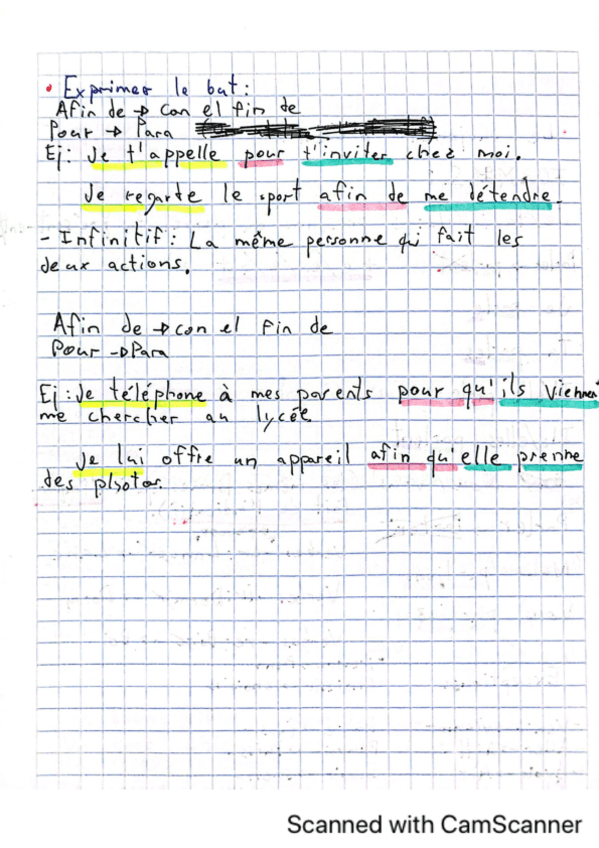 • Exprimer le but:
Afin de → Con el fin de
Pour → Para
Ej: Je t'appelle pour t'inviter chez moi.
Je regarte le sport afin de me détendre.
- Infinitif: La même personne qi fait les
deux actions.
Afin de → con el fin de
Pour → Para
Ej: Je téléphone à mes parents pour qu'ils viennent
me chercher au lycée
Je lui offre un appareil afin qu'elle prenne
des photos.
Scanned with CamScanner